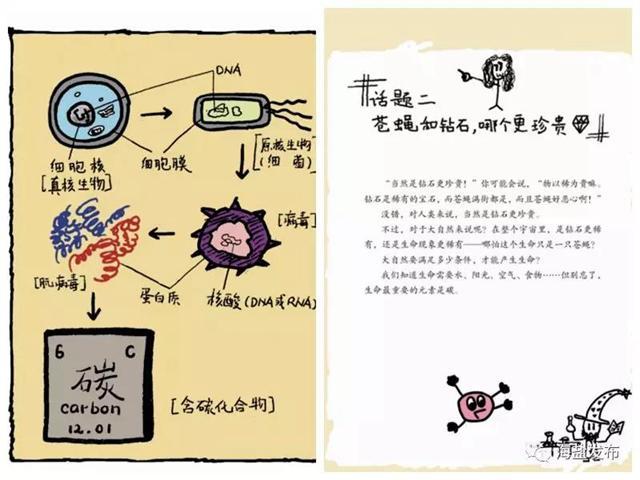 DNA
细胞核
[真核生物]
细胞膜
[原核生物
(细菌)]
[病毒]
[朊病毒]
蛋白质
核酸(DNA或RNA)
6 C
碳
carbon
12.01
[含碳化合物]
#话题二
苍蝇和钻石,哪个更珍贵#
“当然是钻石更珍贵!”你可能会说,“物以稀为贵嘛。
钻石是稀有的宝石,而苍蝇满街都是,而且苍蝇好恶心啊!”
没错,对人类来说,当然是钻石更珍贵。
不过,对于大自然来说呢?在整个宇宙里,是钻石更稀
有,还是生命现象更稀有——哪怕这个生命只是一只苍蝇?
大自然要满足多少条件,才能产生生命?
我们知道生命需要水、阳光、空气、食物……但别忘了,
生命最重要的元素是碳。
海盐发布